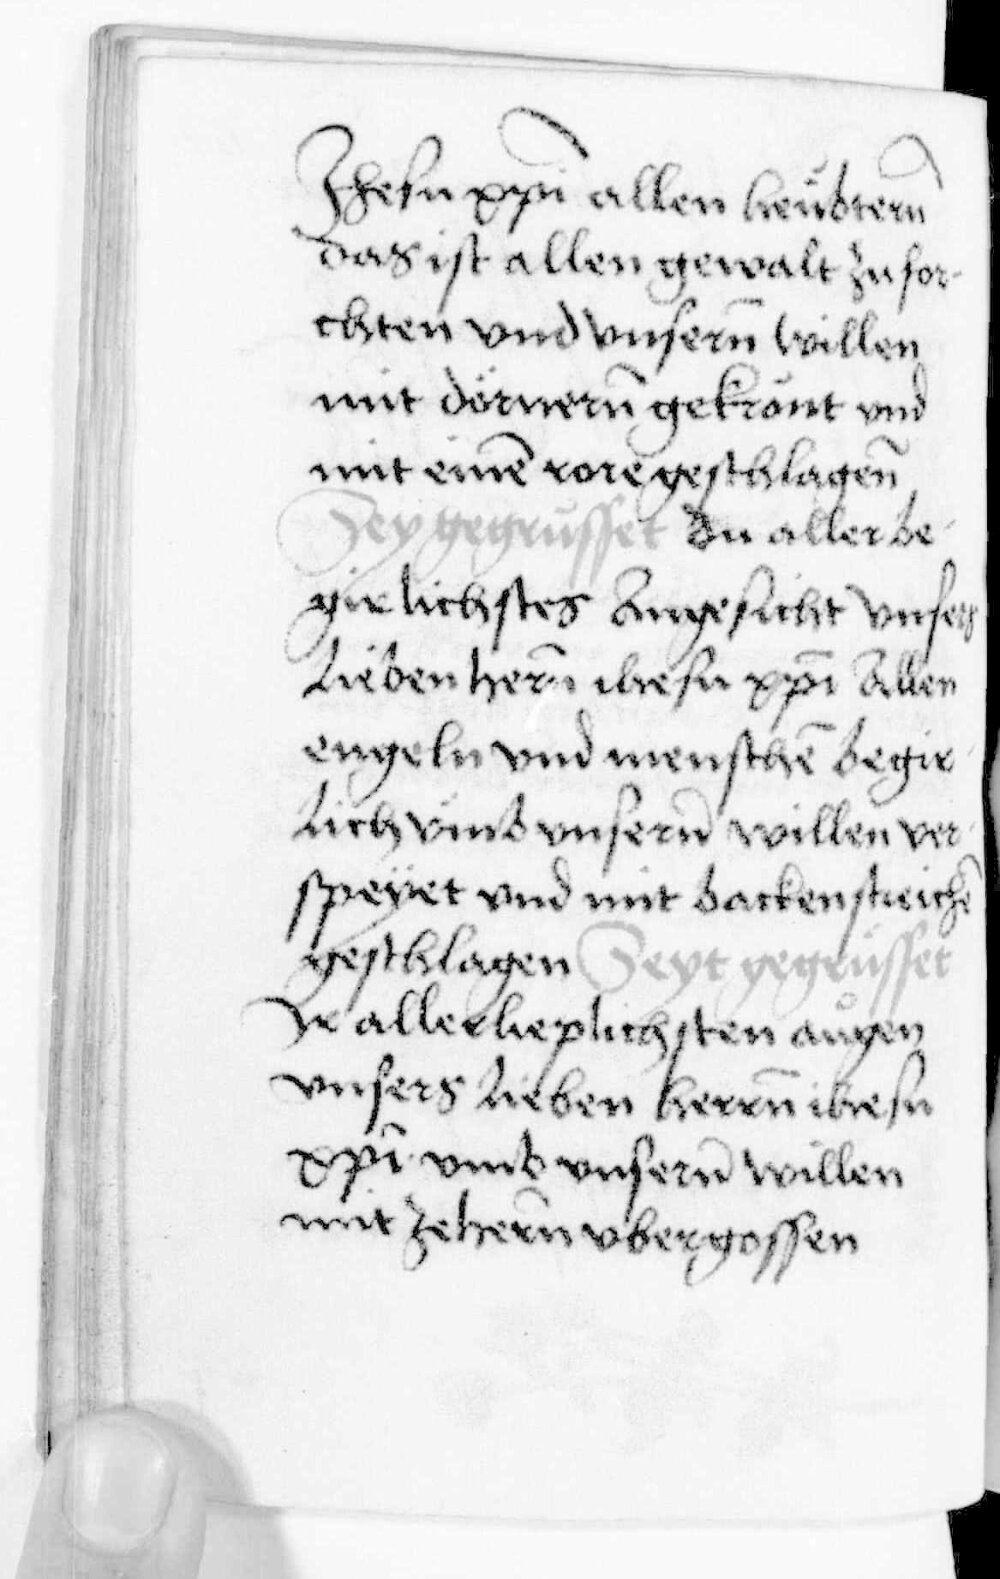 Jhesu xp̄i allen heübternn̄
das ist allen gewalt zu for-
chten vnd vnsern̄ willen
mit dörnern̄ gekrönt vnd
mit einē rore geschlagen̄
Sey gegrüsset du aller be-
girlichstes Angesicht vnsers
lieben hern̄ ihesu xp̄i Allen
engeln vnd menschē begir-
lich vmb vnsern̄ willen ver-
speyet vnd mit backenstreichē
geschlagen Seyt gegrüsset
Ir allerlieplichsten augen
vnsers lieben herrn̄ ihesu
xp̄i vmb vnsern̄ willen
mit zehern̄ vbergossen